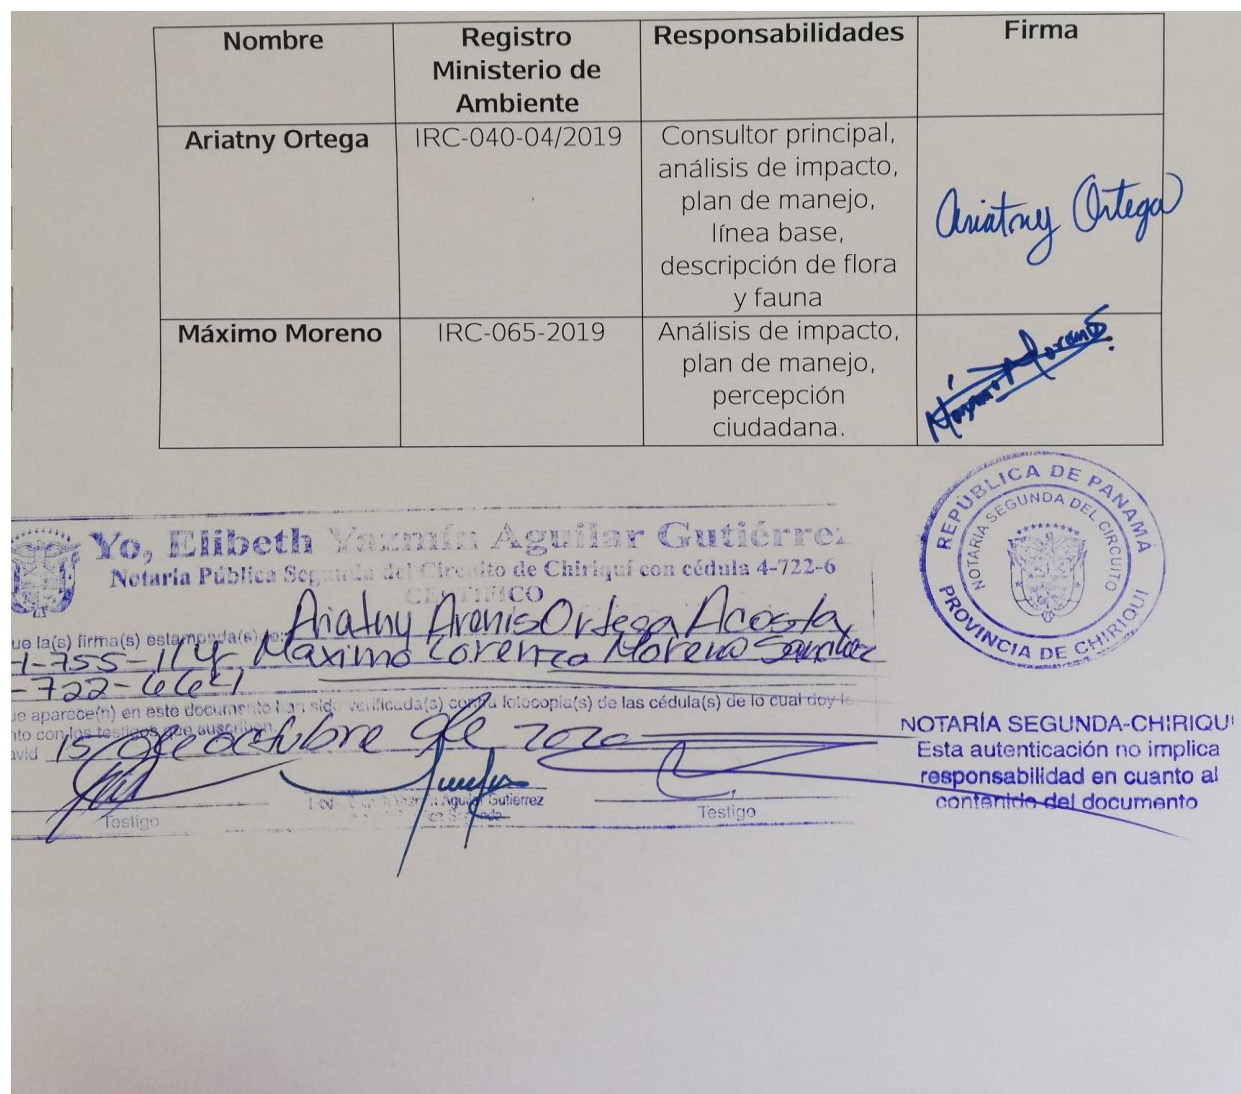 Nombre
Registro Ministerio de Ambiente
Responsabilidades
Firma
Ariatny Ortega
IRC-040-04/2019
Consultor principal,
análisis de impacto,
plan de manejo,
línea base,
descripción de flora
y fauna
Ariatny Ortega
Máximo Moreno
IRC-065-2019
Análisis de impacto,
plan de manejo,
percepción
ciudadana.
Máximo Moreno
REPÚBLICA DE PANAMÁ
NOTARIA SEGUNDA DEL CIRCUITO
PROVINCIA DE CHIRIQUI
Yo, Elibeth Yazmín Aguilar Gutiérrez
Notaria Pública Segunda del Circuito de Chiriquí con cédula 4-722-6
CERTIFICO
ue la(s) firma(s) estampada(s) Ariatny Arenis Ortega Acosta
-755-114 Maximo Lorenzo Moreno Sanchez
-722-6641
e aparece(n) en este documento han sido verificada(s) contra fotocopia(s) de las cédula(s) de lo cual doy fe
nto con los testigos que suscriben
avid 15 de octubre de 2020
Aguilar Gutiérrez
Testigo
Testigo
NOTARÍA SEGUNDA-CHIRIQUI
Esta autenticación no implica
responsabilidad en cuanto al
contenido del documento